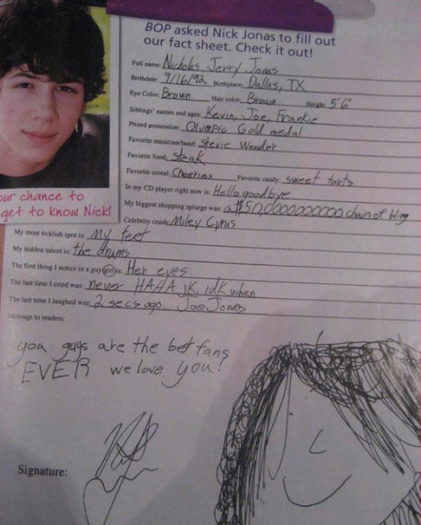 BOP asked Nick Jonas to fill out
our fact sheet. Check it out!
Full name: Nicholas Jerry Jonas
Birthdate: 9/16/92 Birthplace: Dallas, TX
Eye Color: Brown Hair color: Brown Height: 5'6"
Siblings' names and ages: Kevin, Joe, Frankie
Prized possession: Olympic Gold medal
Favorite musician/band: Stevie Wonder
Favorite food: steak
Favorite cereal: Cheerios Favorite candy: sweet tarts
In my CD player right now is: Hellogoodbye
My biggest shopping splurge was: a $50,000000000 chain of bling
Celebrity crush: Miley Cyrus
our chance to
get to know Nick!
My most ticklish spot is: My feet
My hidden talent is: the drums
The first thing I notice in a guy/girl is: Her eyes
The last time I cried was: never HAHA jk, idk when
The last time I laughed was: 2 secs ago... Joe Jonas
Message to readers:
you guys are the bet fans
EVER we love you!
Signature: